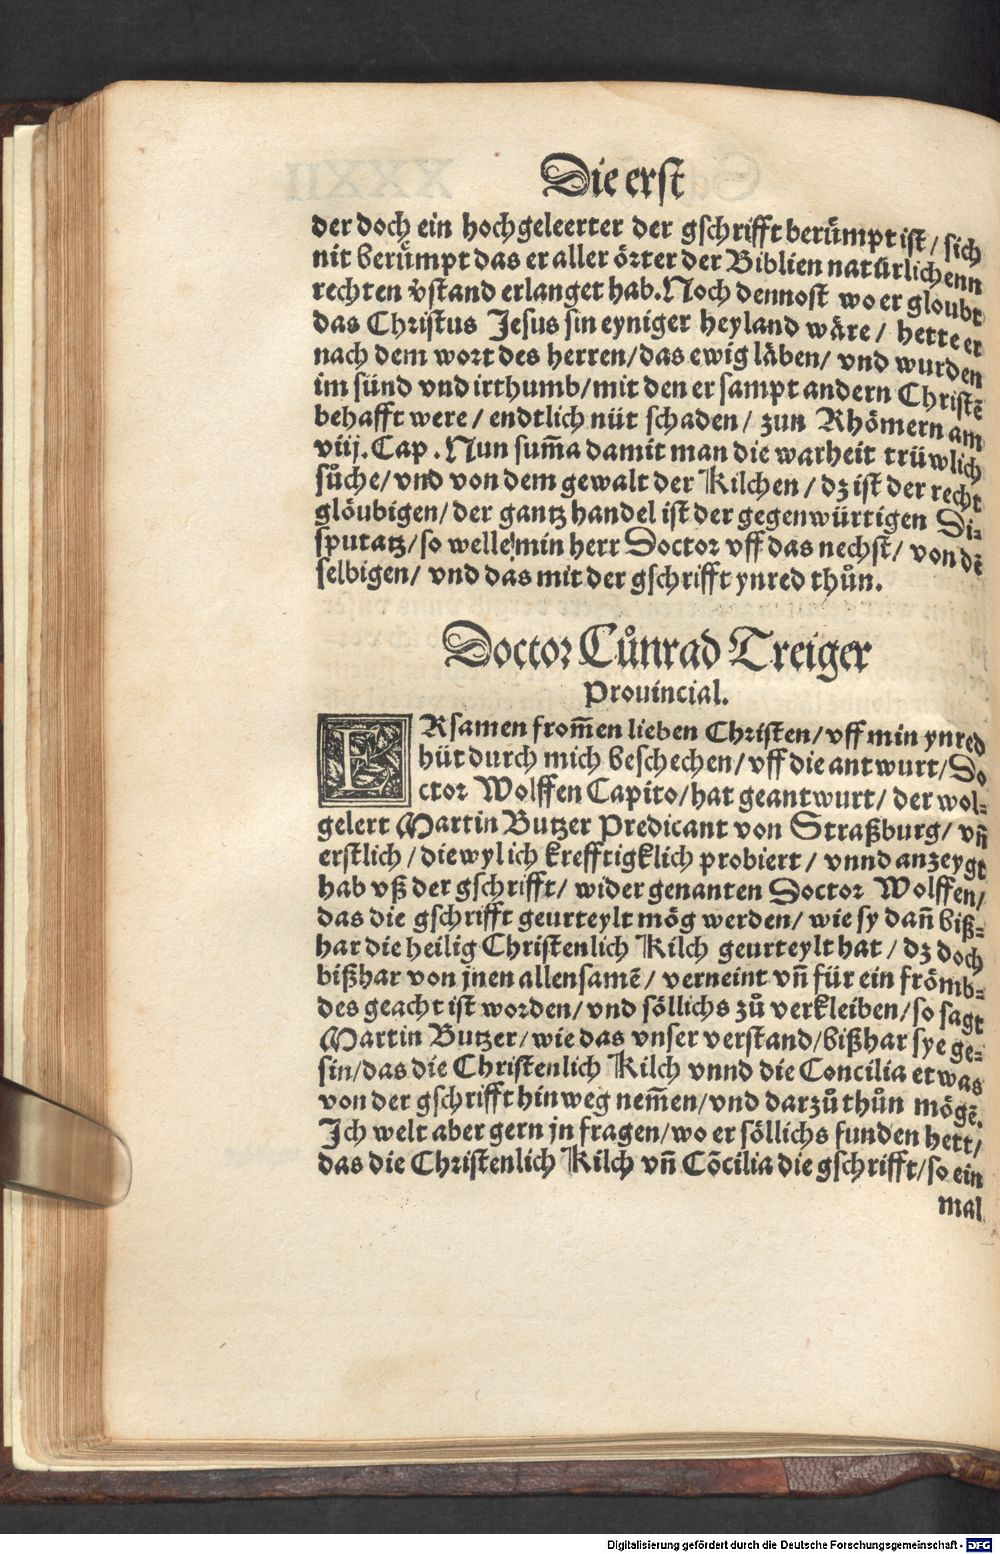 Die erst
der doch ein hochgeleerter der gschrifft berümpt ist / sich
nit berümpt das er aller örter der Biblien natürlichenn
rechten v̄stand erlanget hab. Noch dennost wo er gloubt
das Christus Jesus sin eyniger heyland wäre / hette er
nach dem wort des herren / das ewig läben / vnd wurden
im sünd vnd irthumb / mit den er sampt andern Christē
behafft were / endtlich nüt schaden / zun Rhömern am
viij. Cap. Nun sum̄a damit man die warheit trüwlich
sůche / vnd von dem gewalt der Kilchen / dz ist der recht
glöubigen / der gantz handel ist der gegenwürtigen Di⸗
sputatz / so welle min herr Doctor vff das nechst / von dē
selbigen / vnd das mit der gschrifft ynred thůn.
Doctor Cůnrad Treiger
Prouincial.
ERsamen from̄en lieben Christen / vff min ynred
hüt durch mich beschechen / vff die antwurt / Do
ctor Wolffen Capito / hat geantwurt / der wol⸗
gelert Martin Butzer Predicant von Straßburg / vn̄
erstlich / diewyl ich krefftigklich probiert / vnnd anzeygt
hab vß der gschrifft / wider genanten Doctor Wolffen /
das die gschrifft geurteylt mög werden / wie sy dan̄ biß⸗
har die heilig Christenlich Kilch geurteylt hat / dz doch
bißhar von jnen allensamē / verneint vn̄ für ein frömb⸗
des geacht ist worden / vnd söllichs zů verkleiben / so sagt
Martin Butzer / wie das vnser verstand / bißhar sye ge⸗
sin / das die Christenlich Kilch vnnd die Concilia etwas
von der gschrifft hinweg nem̄en / vnd darzů thůn mögē.
Ich welt aber gern jn fragen / wo er söllichs funden hett /
das die Christenlich Kilch vn̄ Cōcilia die gschrifft / so ein
mal
Digitalisierung gefördert durch die Deutsche Forschungsgemeinschaft - DFG